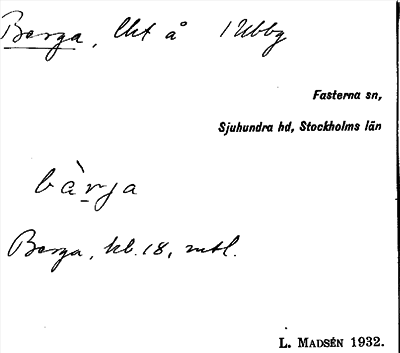 Berga, lht å 1 Ubbg
Fasterna sn,
Sjuhundra hd, Stockholms län
bàrga
Berga, kb. 18, mtl.
L. MADSÉN 1932.